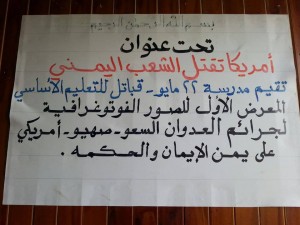 بسم الله الرحمن الرحيم
تحت عنوان
أمريكا تقتل الشعب اليمني
تقيم مدرسة ٢٢ مايو - قباتل للتعليم الأساسي
المعرض الأول للصور الفوتوغرافية
لجرائم العدوان السعو-صهيو-أمريكي
على يمن الإيمان والحكمه .